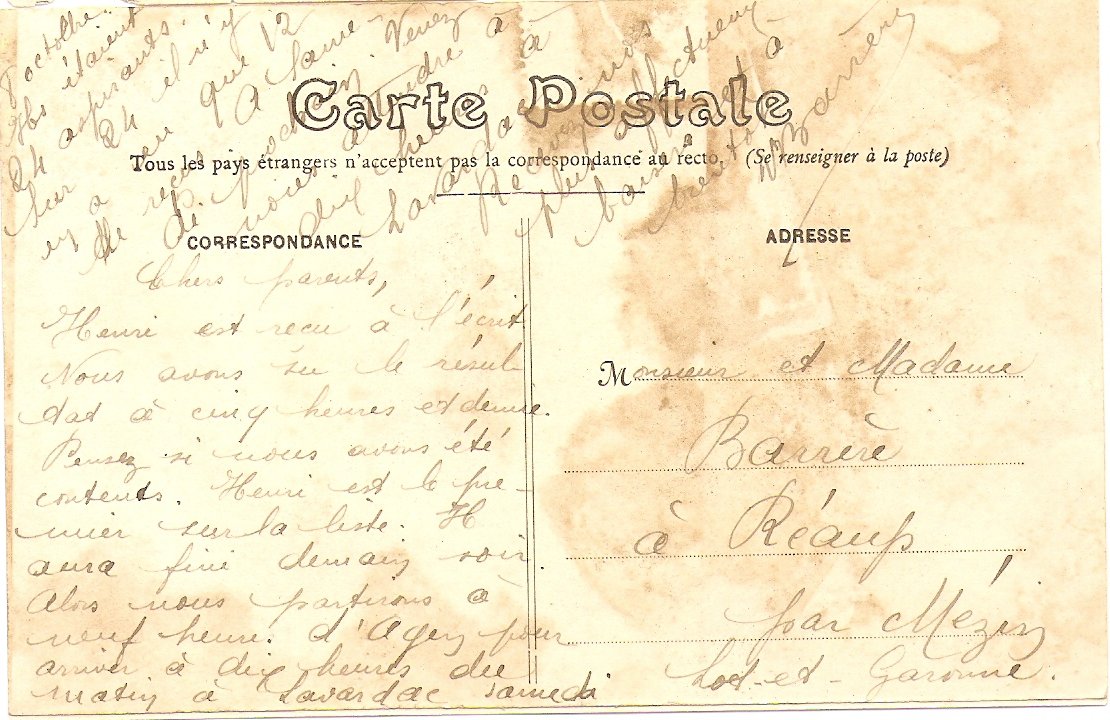 Carte Postale
Tous les pays étrangers n'acceptent pas la correspondance au recto. (Se renseigner à la poste)
CORRESPONDANCE
Chers parents,
Henri est reçu à l'écrit
Nous avons su le résul-
tat à cinq heures et demie.
Pensez si nous avons été
contents. Henri est le pre-
mier sur la liste. Il
aura fini demain soir
Alors nous partirons à
neuf heure. d'Agen pour
arriver à dix heures du
matin à Lavardac samedi
8 octobre.
Ils étaient
24 aspirants
Sur 24 il n'y
en a que 12
de reçus
de prochain. Venez
nous attendre à
dix heures à
Lavardac
Recevez nos
plus affectueux
baisers et à
bientôt
Barrère
ADRESSE
Monsieur et Madame
Barrère
à Réaup
par Mézin
Lot-et-Garonne.